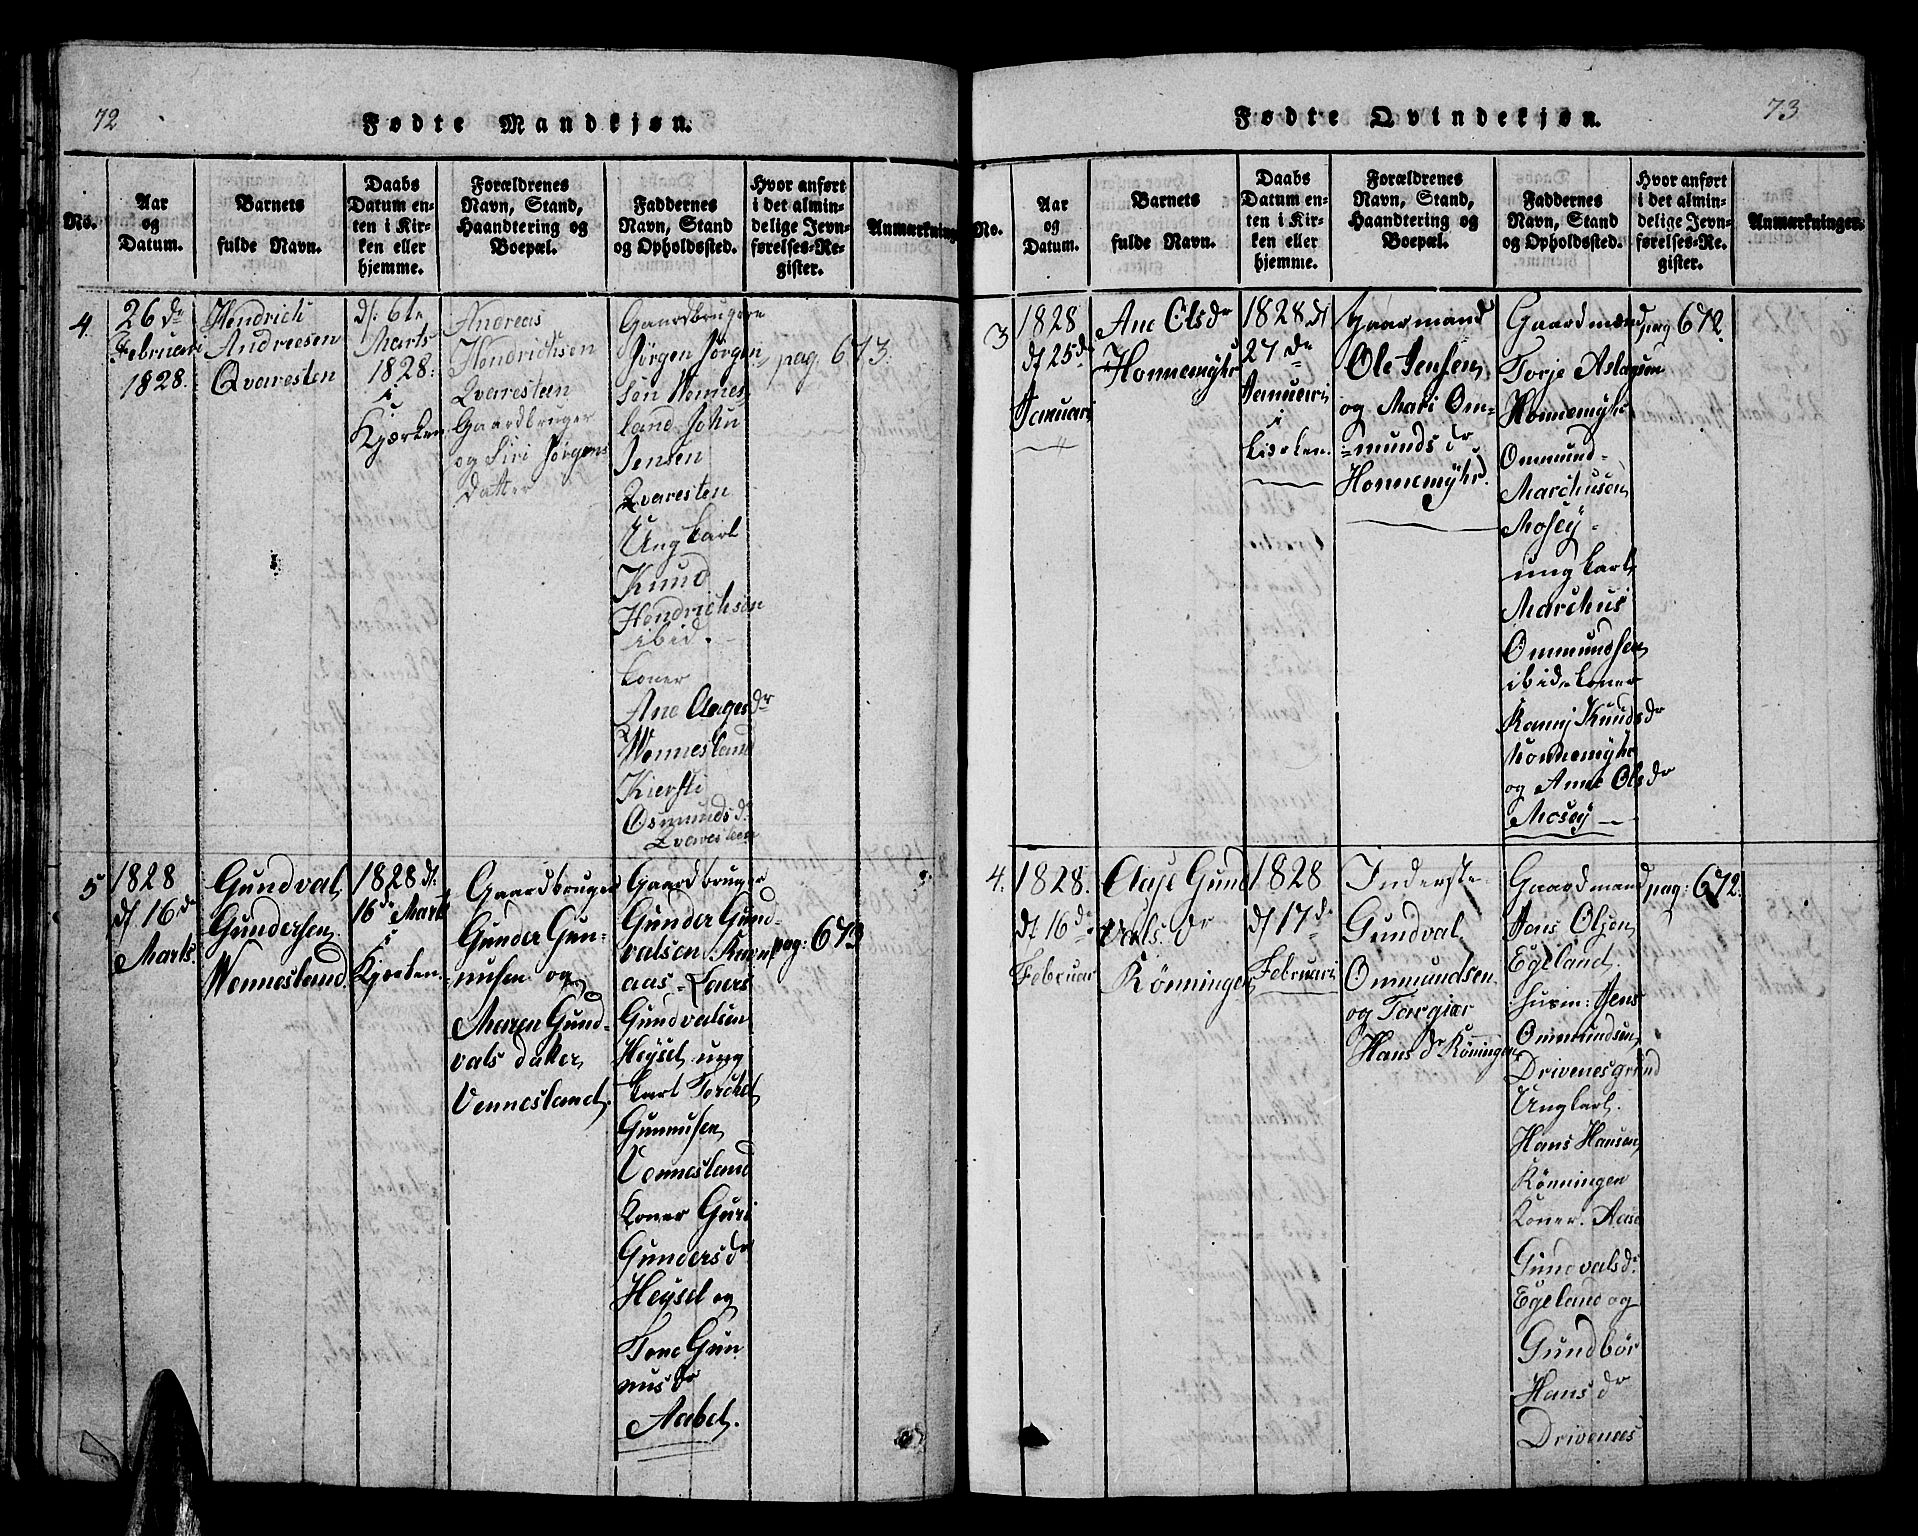 72
Fødte Mandkjøn.
No.
Aar
og
Datum.
Barnets
fulde Navn.
Daabs
Datum en-
ten i Kir-
ken eller
hjemme.
Forældrenes
Navn, Stand,
Haandtering og
Boepæl.
Faddernes
Navn, Stand
og Opholdssted.
Hvor anført
i det almin-
delige Jevn-
førelses-Re-
gister.
Anmærkning
4.
26 de
Februari
1828.
Hendrich
Andreesen
Qvaresten
d: 6te
Marts
1828:
i
Kjærken
Andreas
Hendrichsen
Qvaresteen
Gaardbruger
og Siri Jørgens
datter
Gaardbrugere
Jørgen Jørgen-
sen Wennes
land John
Jensen
Qvaresten
Ung karl
Knud
Hendrichsen
ibid.
koner
Ane Aagesdr
Wennesland
Kiersti
Osmunds dr
Qvaresteen
pag. 673.
5
1828
d 16 de
Marts.
Gundval
Gundersen
Wennesland
1828 d:
16 de Marts
i
Kjærken
Gaardbruger
Gunder Gun-
nusen og
Maren Gund-
vals datter
Vennesland.
Gaardbruger
Gunder Gund-
valsen
aas - Laers
Gundvalsen
Heysel ung
karl Torchel
Gunnusen
Vennesland
Koner Guri
Gunders dr
Heysel og
Tone Gun
nus dr
Aabel.
pag: 673
73
Fødte Qvindekjøn.
No.
Aar
og
Datum.
Barnets
fulde Navn.
Daabs
Datum en-
ten i Kir-
ken eller
hjemme.
Forældrenes
Navn, Stand,
Haandtering og
Boepæl.
Faddernes
Navn, Stand
og Opholdssted.
Hvor anført
i det almin-
delige Jevn-
førelses-Re-
gister.
Anmærkninger.
3
1828
d 25 de
Januari
Ane Ols dr
Honnemyhr
1828 d
27 de
Januari
i
kirken.
Gaarmand
Ole Jensen
og Mari Om-
munds dr
Honnemyhr.
Gaardmænd
Torje Aslagsen
Honnemyhr
Ommund
Marchusen
Mosey
ung karl
Marchus
Ommundsen
ibid. koner
Ranij Knuds dr
Honnemyhr
og Anne Ols dr
Mosey
pag 672
4.
1828.
d 16 de
Februar
Aaje Gund
vals. dr
Rönningen
1828
d 17 de
Februari
Inderste
Gundval
Ommundsen
og Torgiær
Hans dr Rönningen
Gaardmand
Jens Olsen
Egeland.
Jens
Ommundsen
Drivenesgrind
Ungkarl.
Hans Hansen
Rönningen
Koner. Aase
Gundvals dr
Egeland og
Gundbör
Hans dr
Drivenees
pag: 672.